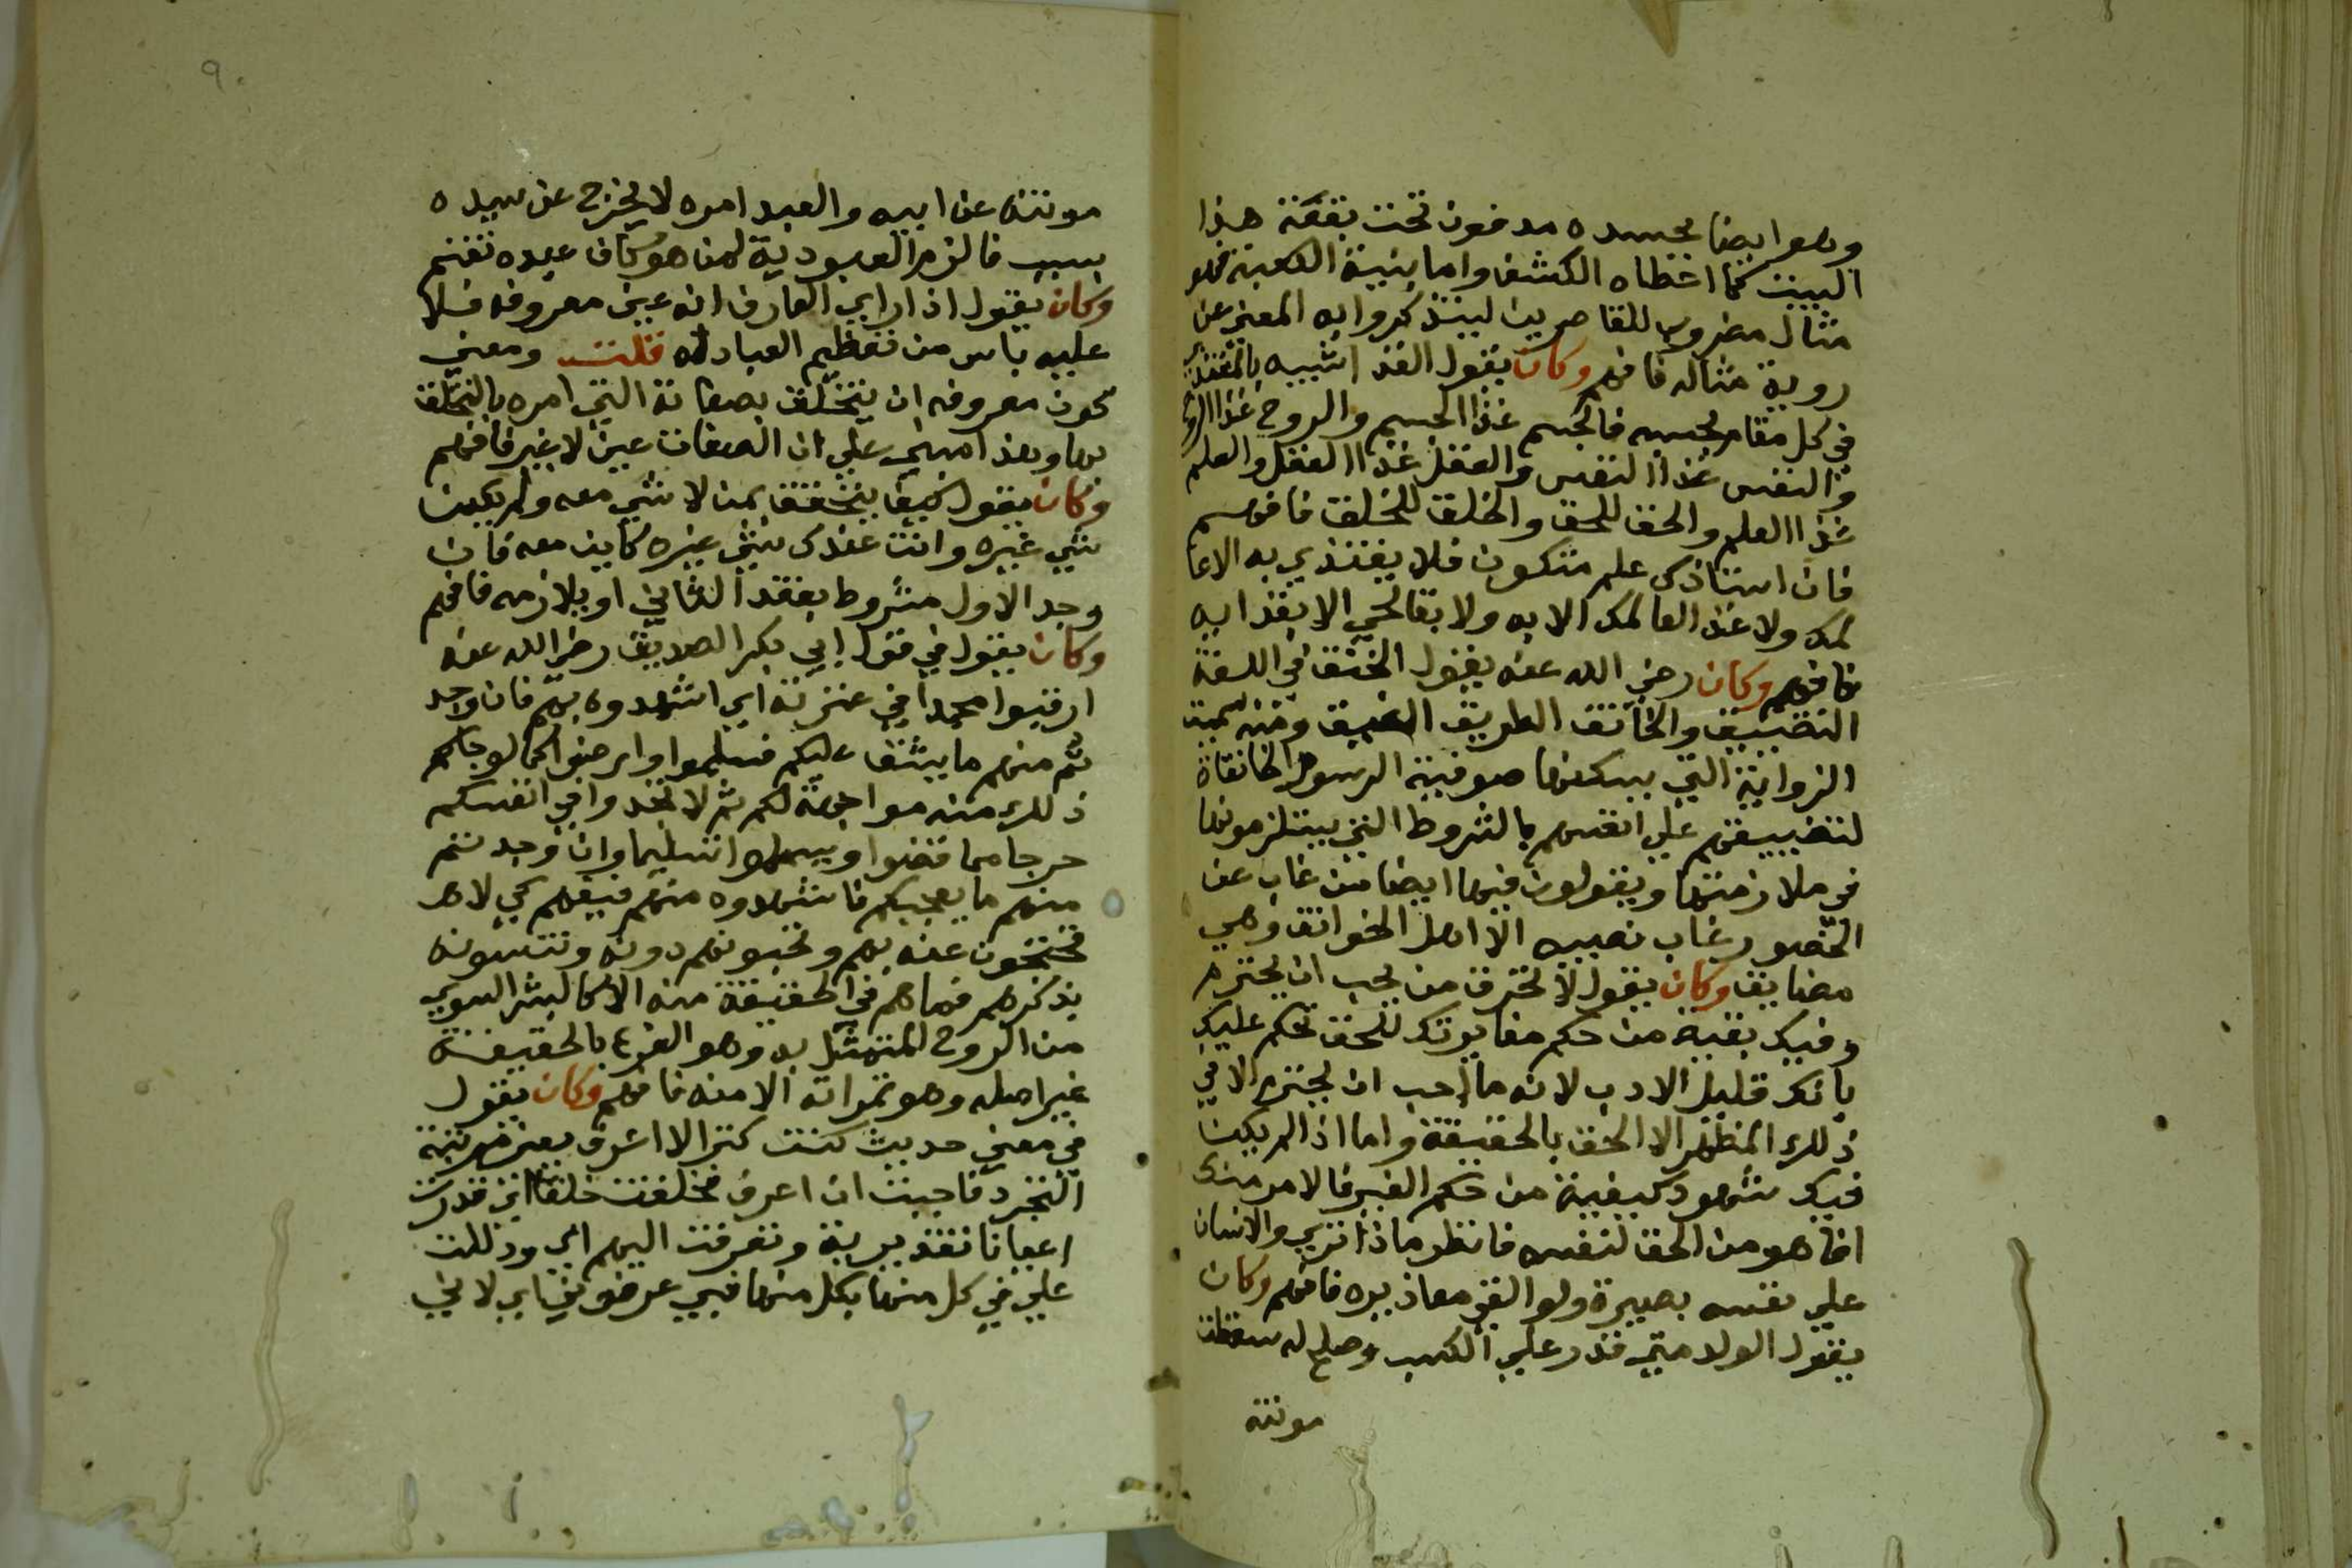 وهو ايضا بجسده مدفون تحت بقعة هذا
البيت كما اعطاه الكشف واما بنية الكعبة فهو
مثال مضروب للقاصرين ليتذكروا به المعنى عن
روية مثاله فافهم وكان يقول الغذا شبيه بالمغتذي
في كل مقام بحسبه فالجسم غذا الجسم والروح غذا الروح
والنفس غذا النفس والعقل غذا العقل والعلم
غذا العلم والحق للحق والخلق للخلق فافهم
فان استاذك علم متكون فلا يغتذي به الا عا
لمك ولا غذا لعالمك الا به ولا بقا لحي الا بغذايه
فافهم وكان رضي الله عنه يقول الخنق في اللغة
التضييق والخانق الطريق الضيق ومنه سميت
الزواية التي يسكنها صوفية الرسوم الخانقاة
لتضييقهم علي انفسهم بالشروط التي يلتزمونها
في ملازمتها ويقولون فيها ايضا من غاب عن
الحضور غاب نصيبه الا اهل الخوانق وهي
مضايق وكان يقول لا تحترق من يجب ان يحترم
وفيك بقية من حكم مغايرتك للحق تحكم عليك
بانك قليل الادب لانه ما احب ان يحترم الا في
ذلك المظهر الا الحق بالحقيقة واما اذا لم يكن
فيك شهود كيفية من حكم الغير فالامر منك
انما هو من الحق لنفسه فانظر ماذا تري والانسان
علي نفسه بصيرة ولو القي معاذيره فافهم وكان
يقول الولد متي قدر علي الكسب وصلح له سقطت
مونته
٩٠
مونته عن ابيه والعبد امره لا يخرج عن سيده
بسبب فالزم العبودية لمن هو كاف عبده تغنم
وكان يقول اذا راي العارف انه عين معروفه فلا
عليه باس من تعظيم العباد له قلت ومعني
كون معروفه ان يتخلق بصفاته التي امره بالتخلق
بها وهذا مبني علي ان الصفات عين لا غير فافهم
وكان يقول كيف يتحقق بمن لا شي معه ولم يكن
شي غيره وانت عندك شي غيره كاين معه فان
وجد الاول مشروط بفقد الثاني او بلازمه فافهم
وكان يقول في قول ابي بكر الصديق رضي الله عنه
ارقبوا محمدا في عترته اي اشهدوه بهم فان وجد
تم منهم ما يشق عليكم فسلموا وارضوا كما لو جاكم
ذلك منه مواجهة لكم ثم لا تجدوا في انفسكم
حرجا مما قضوا ويسلموا تسليما وان وجدتم
منهم ما يعجبكم فاشهدوه منهم فيقهم كي لا
تحتجون عنه بهم وتحبونهم دونه وتنسونه
بذكرهم فما هم في الحقيقة منه الا كالبشر السوي
من الروح المتمثل به وهو الفرع بالحقيقة
غير اصله وهو ثمراته الا منه فافهم وكان يقول
في معني حديث كنت كنزا لا اعرف يعني مرتبة
التجرد فاحببت ان اعرف فخلقت خلقا اي قدرت
اعيانا تقديرية وتعرفت اليهم اي ودللت
علي في كل منها بكل منها فبي عرفوني اي لاني